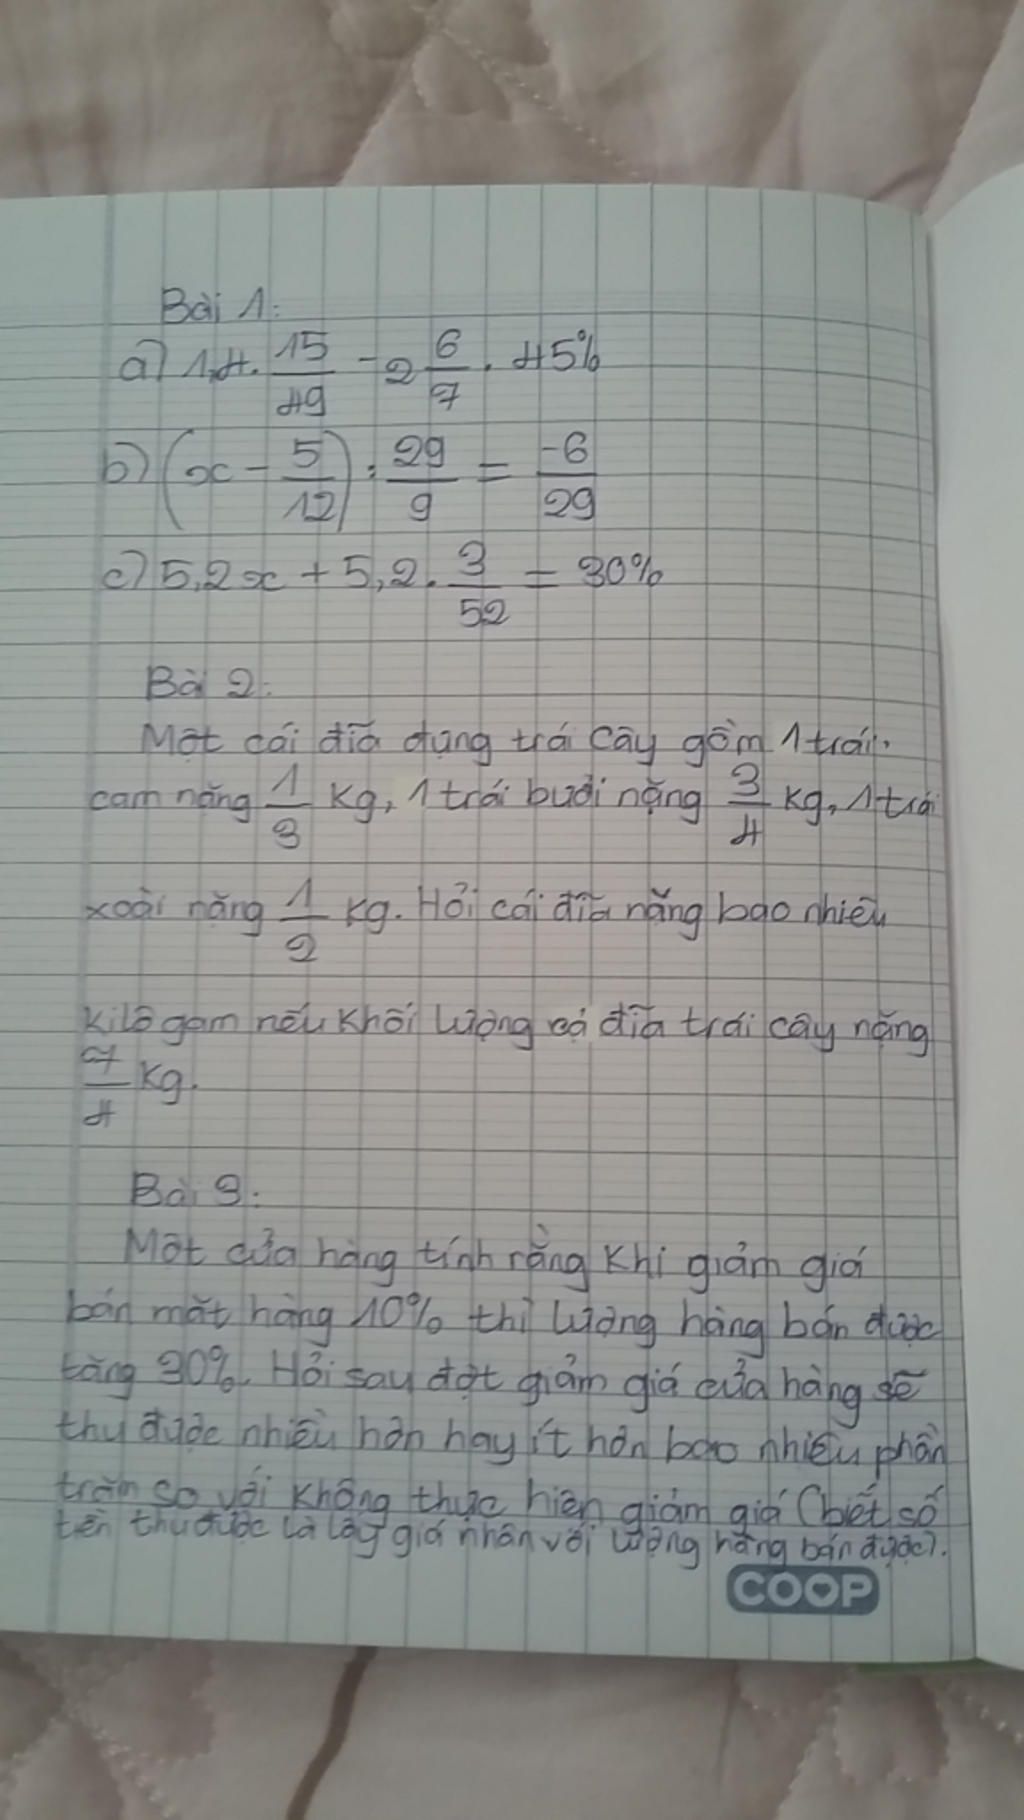 Bài 1:
a) 1,4. 15/49 - 2 6/7 . 45%
b) (x - 5/12) : 29/9 = -6/29
c) 5,2x + 5,2. 3/52 = 30%
Bài 2:
Một cái đĩa đựng trá cây gồm 1 trái
cam nặng 1/3 kg, 1 trái bưởi nặng 3/4 kg, 1 trái
xoài nặng 1/2 kg. Hỏi cái đĩa nặng bao nhiêu
kilôgam nếu khối lượng cả đĩa trái cây nặng
7/4 kg.
Bài 3:
Một cửa hàng tính rằng khi giảm giá
bán mặt hàng 10% thì lượng hàng bán được
tăng 30%. Hỏi sau đợt giảm giá cửa hàng sẽ
thu được nhiều hơn hay ít hơn bao nhiêu phần
trăm so với không thực hiện giảm giá (biết số
tiền thu được là lấy giá nhân với lượng hàng bán được).
COOP